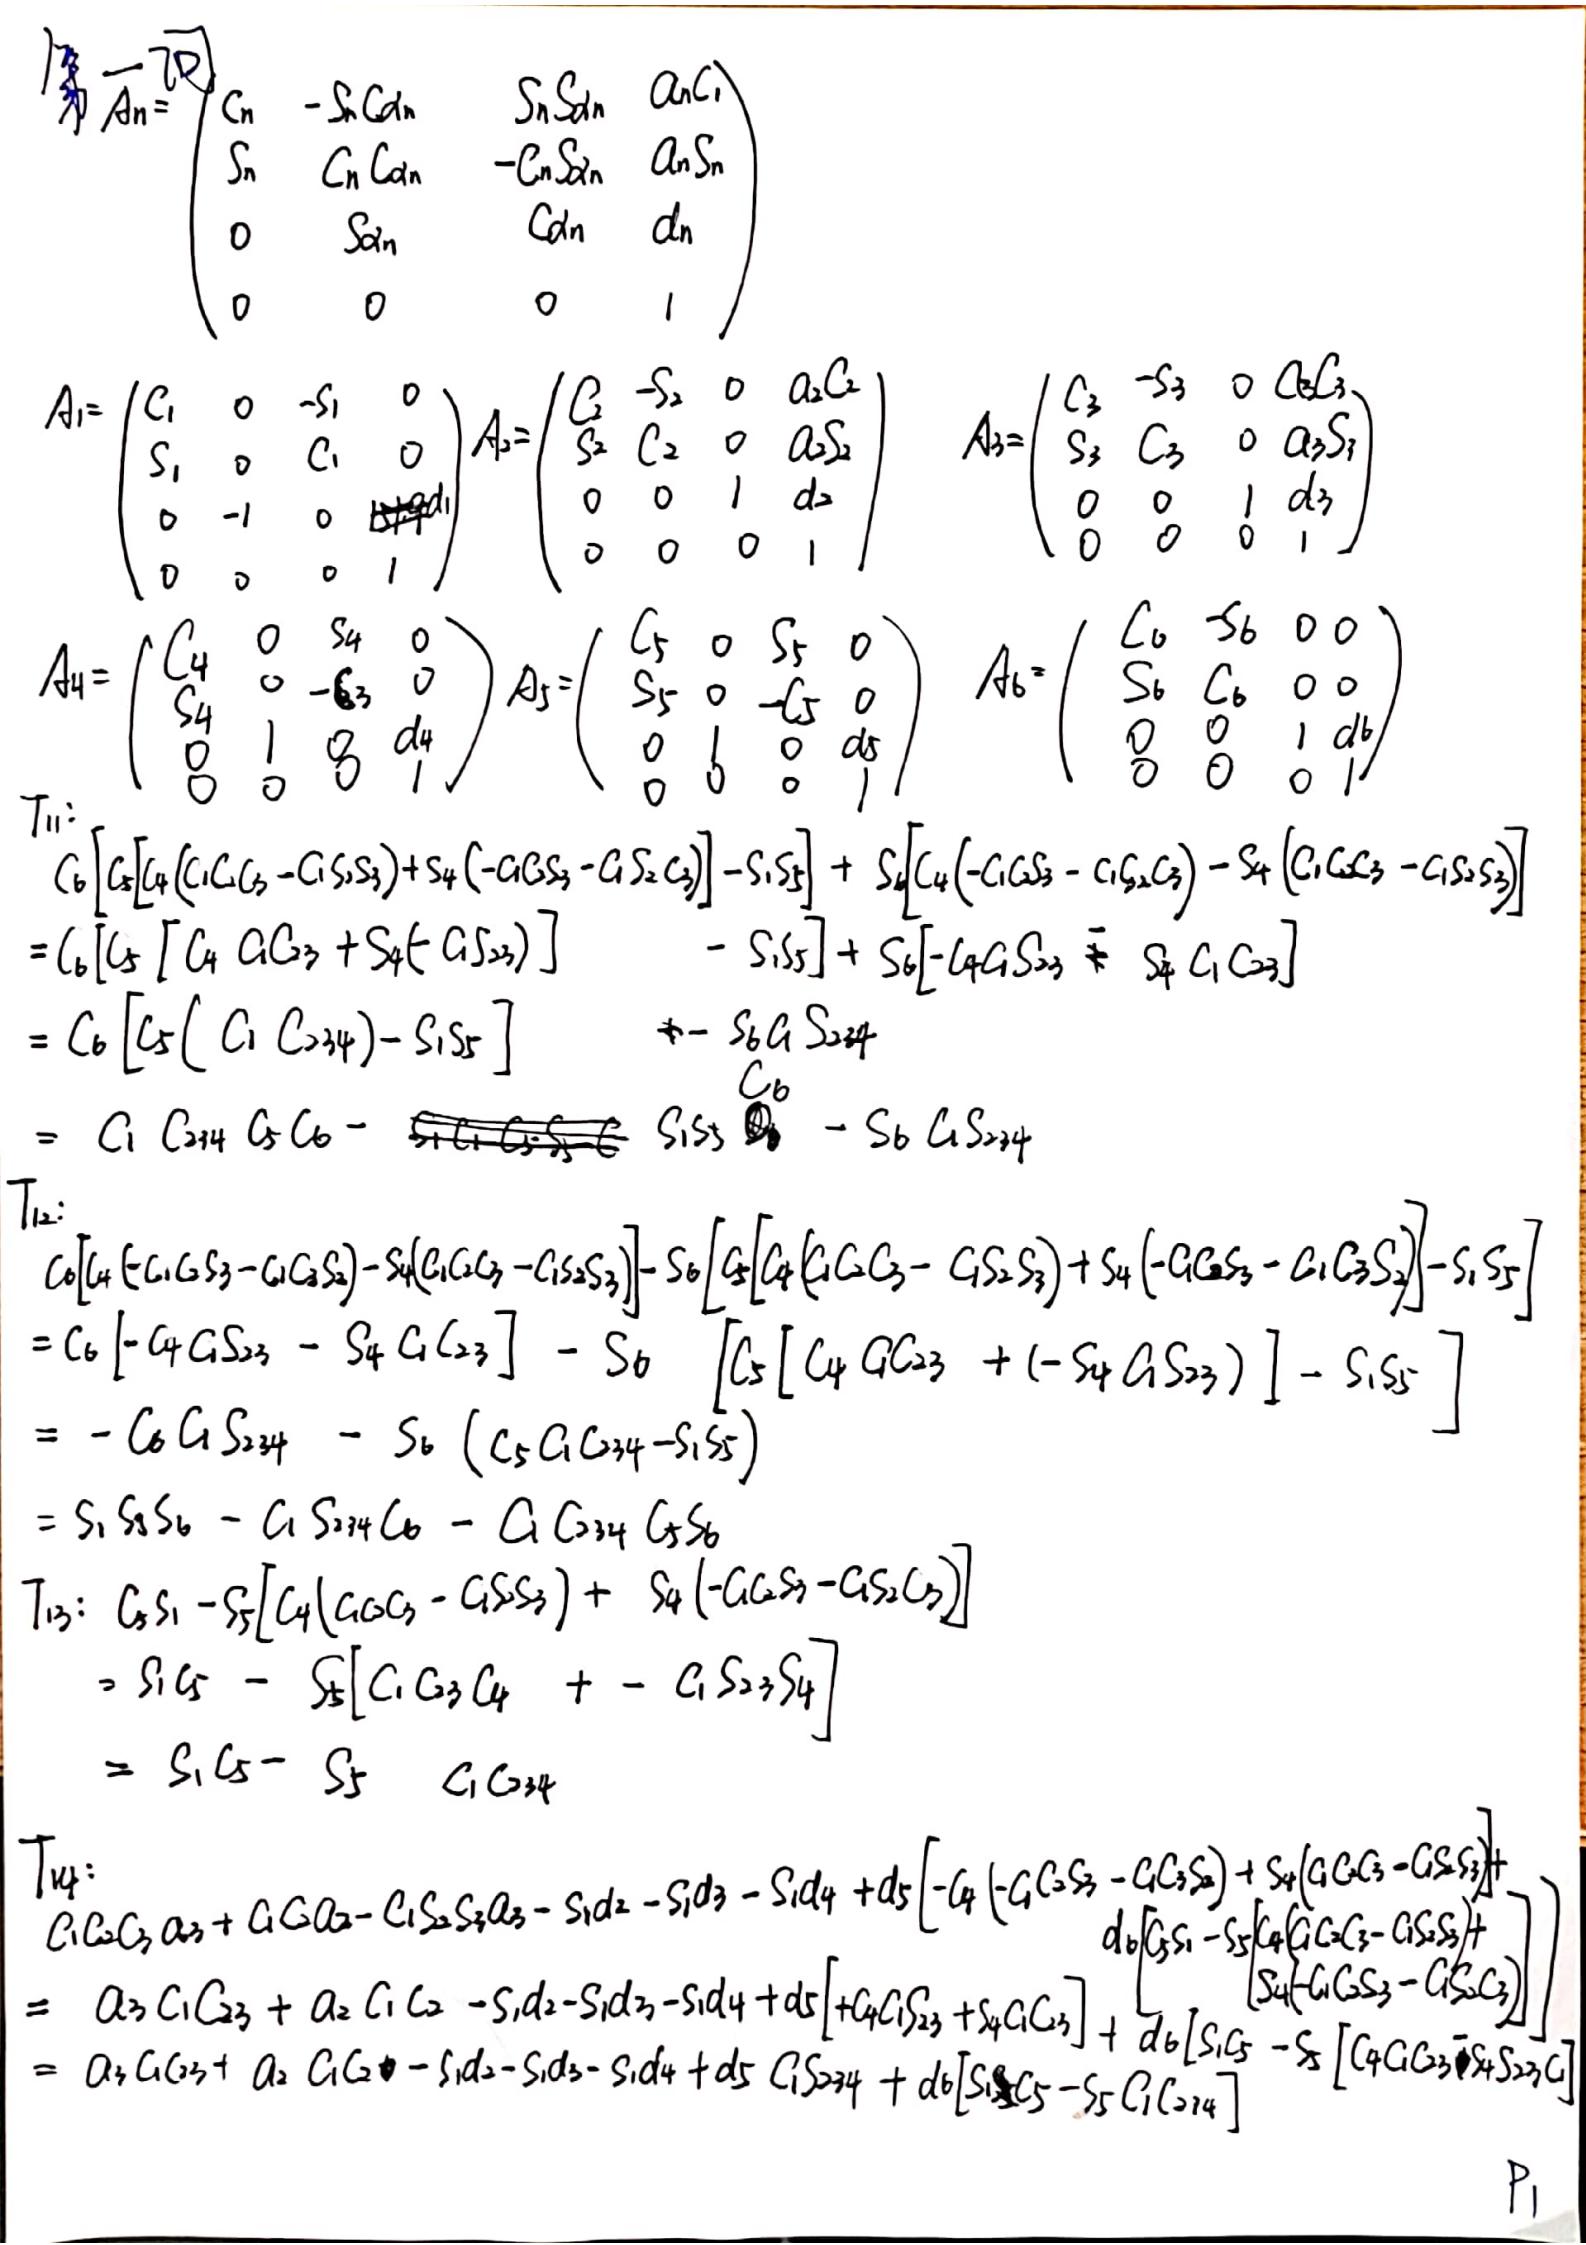 第一页
An= ( Cn -SnCαn SnSαn anC1
Sn CnCαn -CnSαn anSn
0 Sαn Cαn dn
0 0 0 1 )
A1= ( C1 0 -S1 0 A2= ( C2 -S2 0 a2C2 A3= ( C3 -S3 0 a3C3
S1 0 C1 0 S2 C2 0 a2S2 S3 C3 0 a3S3
0 -1 0 d1 0 0 1 d2 0 0 1 d3
0 0 0 1 ) 0 0 0 1 ) 0 0 0 1 )
A4= ( C4 0 S4 0 A5= ( C5 0 S5 0 A6= ( C6 -S6 0 0
S4 0 -C3 0 S5 0 -C5 0 S6 C6 0 0
0 1 0 d4 0 1 0 d5 0 0 1 d6
0 0 0 1 ) 0 0 0 1 ) 0 0 0 1 )
T11:
C6[C5[C4(C1C2C3-C1S2S3)+S4(-C1C2S3-C1S2C3)]-S1S5] + S6[C4(-C1C2S3-C1S2C3)-S4(C1C2C3-C1S2S3)]
=C6[C5[C4 C1C23+S4(-C1S23)] -S1S5]+S6[-C4C1S23 - S4 C1C23]
= C6[C5(C1 C234)-S1S5] - S6C1S234
= C1 C234 C5C6 - S1S5 C6 - S6 C1S234
T12:
C6[C4(-C1C2S3-C1C3S2)-S4(C1C2C3-C1S2S3)]-S6[C5[C4(C1C2C3-C1S2S3)+S4(-C1C2S3-C1C3S2)]-S1S5]
=C6[-C4C1S23 - S4C1C23] - S6 [C5[C4 C1C23 +(-S4C1S23)] - S1S5]
= -C6C1S234 - S6 (C5C1C234-S1S5)
= S1S5S6 - C1S234C6 - C1C234 C5S6
T13: C5S1-S5[C4(C1C2C3-C1S2S3)+ S4(-C1C2S3-C1S2C3)]
= S1C5 - S5[C1C23C4 + - C1S23S4]
= S1C5 - S5 C1C234
T14:
C1C2C3a3+C1C2a2-C1S2S3a3-S1d2-S1d3-S1d4+d5[-C4(-C1C2S3-C1C3S2)+S4(C1C2C3-C1S2S3)]+
d6[C5S1-S5[C4(C1C2C3-C1S2S3)+
S4(-C1C2S3-C1S2C3)]]
= a3C1C23+a2C1C2 -S1d2-S1d3-S1d4+d5[+C4C1S23+S4C1C23]+d6[S1C5-S5[C4C1C23-S4S23C1]
= a3C1C23+ a2 C1C2 -S1d2-S1d3-S1d4+d5 C1S234 +d6[S1C5-S5C1C234]
P1